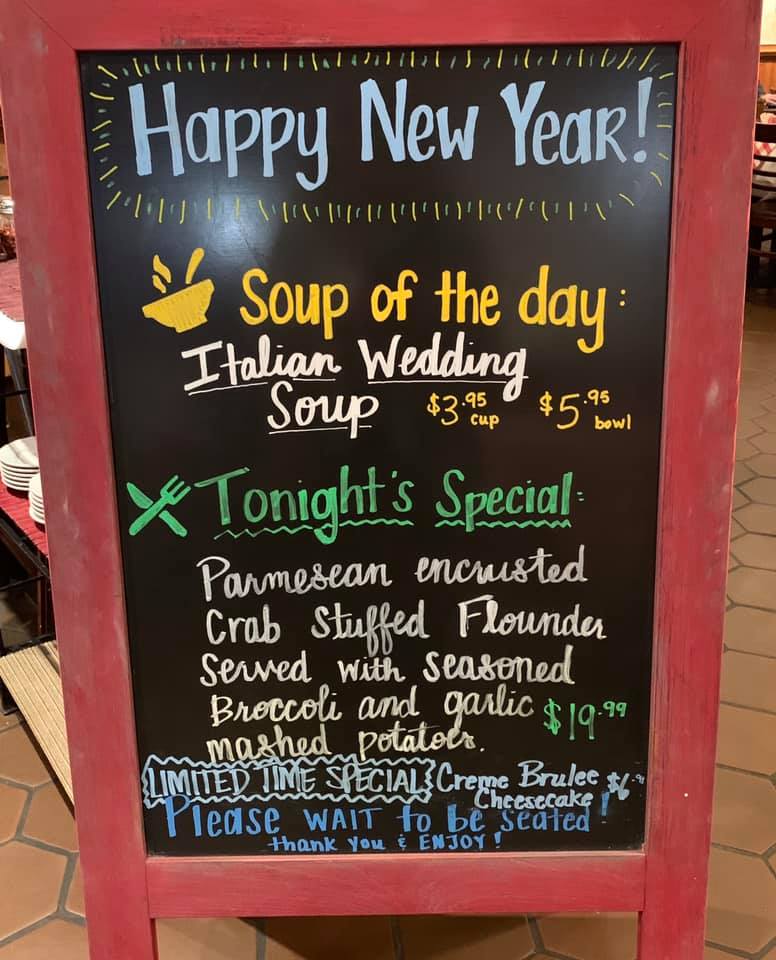 Happy New Year!
Soup of the day:
Italian Wedding
Soup $3.95 cup $5.95 bowl
Tonight's Special:
Parmesean encrusted
Crab Stuffed Flounder
Served with seasoned
Broccoli and garlic $19.99
mashed potatoes.
LIMITED TIME SPECIAL Creme Brulee $6
Cheesecake!
Please WAIT to be seated!
thank you & ENJOY!